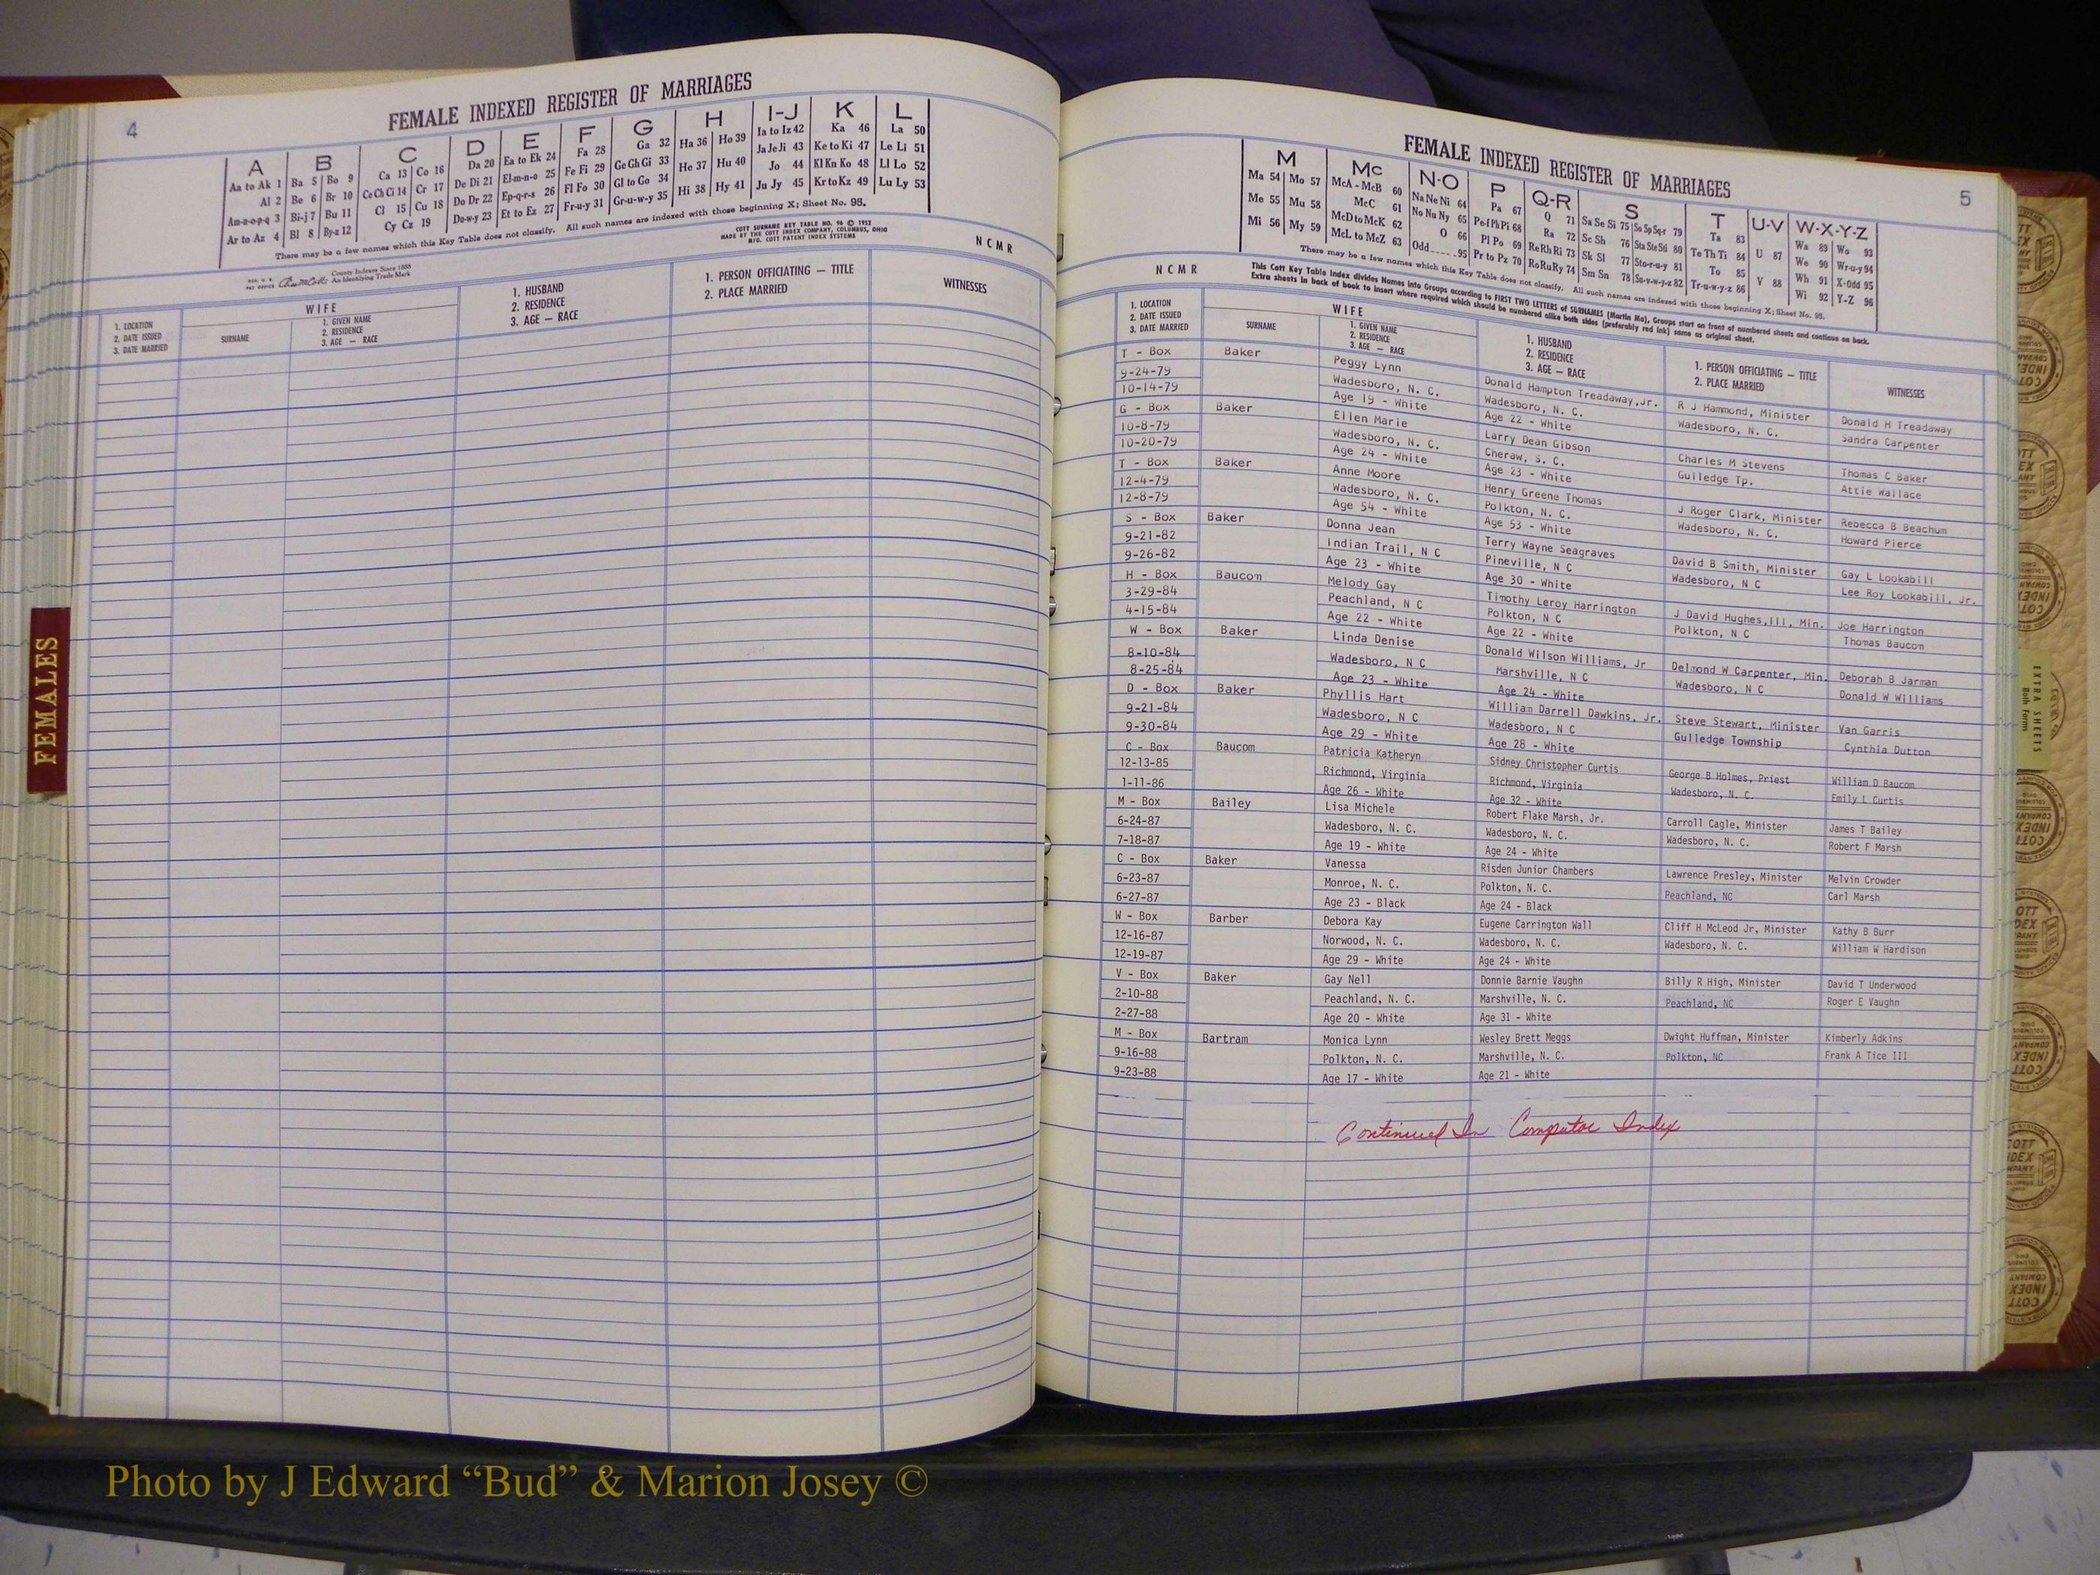 4
FEMALE INDEXED REGISTER OF MARRIAGES
A B C D E F G H I-J K L
Aa to Ak 1 Ba 5 Bo 9 Ca 13 Co 16 Da 20 Ea to Ek 24 Fa 28 Ga 32 Ha 36 Ho 39 Ia to Iz 42 Ka 46 La 50
Al 2 Be 6 Br 10 Ce Ch Ci 14 Cr 17 De Di 21 El-m-n-o 25 Fe Fi 29 Ge Gh Gi 33 He 37 Hu 40 Ja Je Ji 43 Ke to Ki 47 Le Li 51
Am-n-o-p-q 3 Bi-j 7 Bu 11 Cl 15 Cu 18 Do Dr 22 Ep-q-r-s 26 Fl Fo 30 Gl to Go 34 Hi 38 Hy 41 Jo 44 Kl Kn Ko 48 Ll Lo 52
Ar to Az 4 Bl 8 By-z 12 Cy Cz 19 Du-w-y 23 Et to Ez 27 Fr-u-y 31 Gr-u-w-y 35 Ju Jy 45 Kr to Kz 49 Lu Ly 53
There may be a few names which this Key Table does not classify. All such names are indexed with those beginning X; Sheet No. 95.
COTT SURNAME KEY TABLE NO. 96 © 1952
MADE BY THE COTT INDEX COMPANY, COLUMBUS, OHIO
MFG. COTT PATENT INDEX SYSTEMS
N C M R
County Indexes Since 1888
An Identifying Trade Mark
1. LOCATION
2. DATE ISSUED
3. DATE MARRIED
WIFE
SURNAME
1. GIVEN NAME
2. RESIDENCE
3. AGE — RACE
1. HUSBAND
2. RESIDENCE
3. AGE — RACE
1. PERSON OFFICIATING — TITLE
2. PLACE MARRIED
WITNESSES
FEMALES
5
FEMALE INDEXED REGISTER OF MARRIAGES
M Mc N-O P Q-R S T U-V W-X-Y-Z
Ma 54 Mo 57 McA - McB 60 Na Ne Ni 64 Pa 67 Q 71 Sa Se Si 75 So Sp Sq-r 79 Ta 83 Wa 89 Wo 93
Me 55 Mu 58 McC 61 No Nu Ny 65 Pe-f Ph Pi 68 Ra 72 Sc Sh 76 Sta Ste Sti 80 Te Th Ti 84 U 87 We 90 Wr-u-y 94
Mi 56 My 59 McD to McK 62 O 66 Pl Po 69 Re Rh Ri 73 Sk Sl 77 Sto-r-u-y 81 To 85 Wh 91 X-Odd 95
McL to McZ 63 Odd 95 Pr to Pz 70 Ro Ru Ry 74 Sm Sn 78 Su-v-w-y-z 82 Tr-u-w-y-z 86 V 88 Wi 92 Y-Z 96
There may be a few names which this Key Table does not classify. All such names are indexed with those beginning X; Sheet No. 95.
N C M R
This Cott Key Table Index divides Names into Groups according to FIRST TWO LETTERS of SURNAMES (Martin Ma), Groups start on front of numbered sheets and continue on back.
Extra sheets in back of book to insert where required which should be numbered alike both sides (preferably red ink) same as original sheet.
1. LOCATION
2. DATE ISSUED
3. DATE MARRIED
WIFE
SURNAME
1. GIVEN NAME
2. RESIDENCE
3. AGE — RACE
1. HUSBAND
2. RESIDENCE
3. AGE — RACE
1. PERSON OFFICIATING — TITLE
2. PLACE MARRIED
WITNESSES
T - Box Baker Peggy Lynn Donald Hampton Treadaway,Jr. R J Hammond, Minister Donald H Treadaway
9-24-79 Wadesboro, N. C. Wadesboro, N. C. Wadesboro, N. C. Sandra Carpenter
10-14-79 Age 19 - White Age 22 - White
G - Box Baker Ellen Marie Larry Dean Gibson Charles M Stevens Thomas C Baker
10-8-79 Wadesboro, N. C. Cheraw, S. C. Gulledge Tp. Attie Wallace
10-20-79 Age 24 - White Age 23 - White
T - Box Baker Anne Moore Henry Greene Thomas J Roger Clark, Minister Rebecca B Beachum
12-4-79 Wadesboro, N. C. Polkton, N. C. Wadesboro, N. C. Howard Pierce
12-8-79 Age 54 - White Age 53 - White
S - Box Baker Donna Jean Terry Wayne Seagraves David B Smith, Minister Gay L Lookabill
9-21-82 Indian Trail, N C Pineville, N C Wadesboro, N C Lee Roy Lookabill, Jr.
9-26-82 Age 23 - White Age 30 - White
H - Box Baucom Melody Gay Timothy Leroy Harrington J David Hughes,III, Min. Joe Harrington
3-29-84 Peachland, N C Polkton, N C Polkton, N C Thomas Baucom
4-15-84 Age 22 - White Age 22 - White
W - Box Baker Linda Denise Donald Wilson Williams, Jr Delmond W Carpenter, Min. Deborah B Jarman
8-10-84 Wadesboro, N C Marshville, N C Wadesboro, N C Donald W Williams
8-25-84 Age 23 - White Age 24 - White
D - Box Baker Phyllis Hart William Darrell Dawkins, Jr. Steve Stewart, Minister Van Garris
9-21-84 Wadesboro, N C Wadesboro, N C Gulledge Township Cynthia Dutton
9-30-84 Age 29 - White Age 28 - White
C - Box Baucom Patricia Katheryn Sidney Christopher Curtis George B Holmes, Priest William D Baucom
12-13-85 Richmond, Virginia Richmond, Virginia Wadesboro, N. C. Emily L Curtis
1-11-86 Age 26 - White Age 32 - White
M - Box Bailey Lisa Michele Robert Flake Marsh, Jr. Carroll Cagle, Minister James T Bailey
6-24-87 Wadesboro, N. C. Wadesboro, N. C. Wadesboro, N. C. Robert F Marsh
7-18-87 Age 19 - White Age 24 - White
C - Box Baker Vanessa Risden Junior Chambers Lawrence Presley, Minister Melvin Crowder
6-23-87 Monroe, N. C. Polkton, N. C. Peachland, NC Carl Marsh
6-27-87 Age 23 - Black Age 24 - Black
W - Box Barber Debora Kay Eugene Carrington Wall Cliff H McLeod Jr, Minister Kathy B Burr
12-16-87 Norwood, N. C. Wadesboro, N. C. Wadesboro, N. C. William W Hardison
12-19-87 Age 29 - White Age 24 - White
V - Box Baker Gay Nell Donnie Barnie Vaughn Billy R High, Minister David T Underwood
2-10-88 Peachland, N. C. Marshville, N. C. Peachland, NC Roger E Vaughn
2-27-88 Age 20 - White Age 31 - White
M - Box Bartram Monica Lynn Wesley Brett Meggs Dwight Huffman, Minister Kimberly Adkins
9-16-88 Polkton, N. C. Marshville, N. C. Polkton, NC Frank A Tice III
9-23-88 Age 17 - White Age 21 - White
Continued In Computer Index
EXTRA SHEETS
Both Forms
Photo by J Edward “Bud” & Marion Josey ©